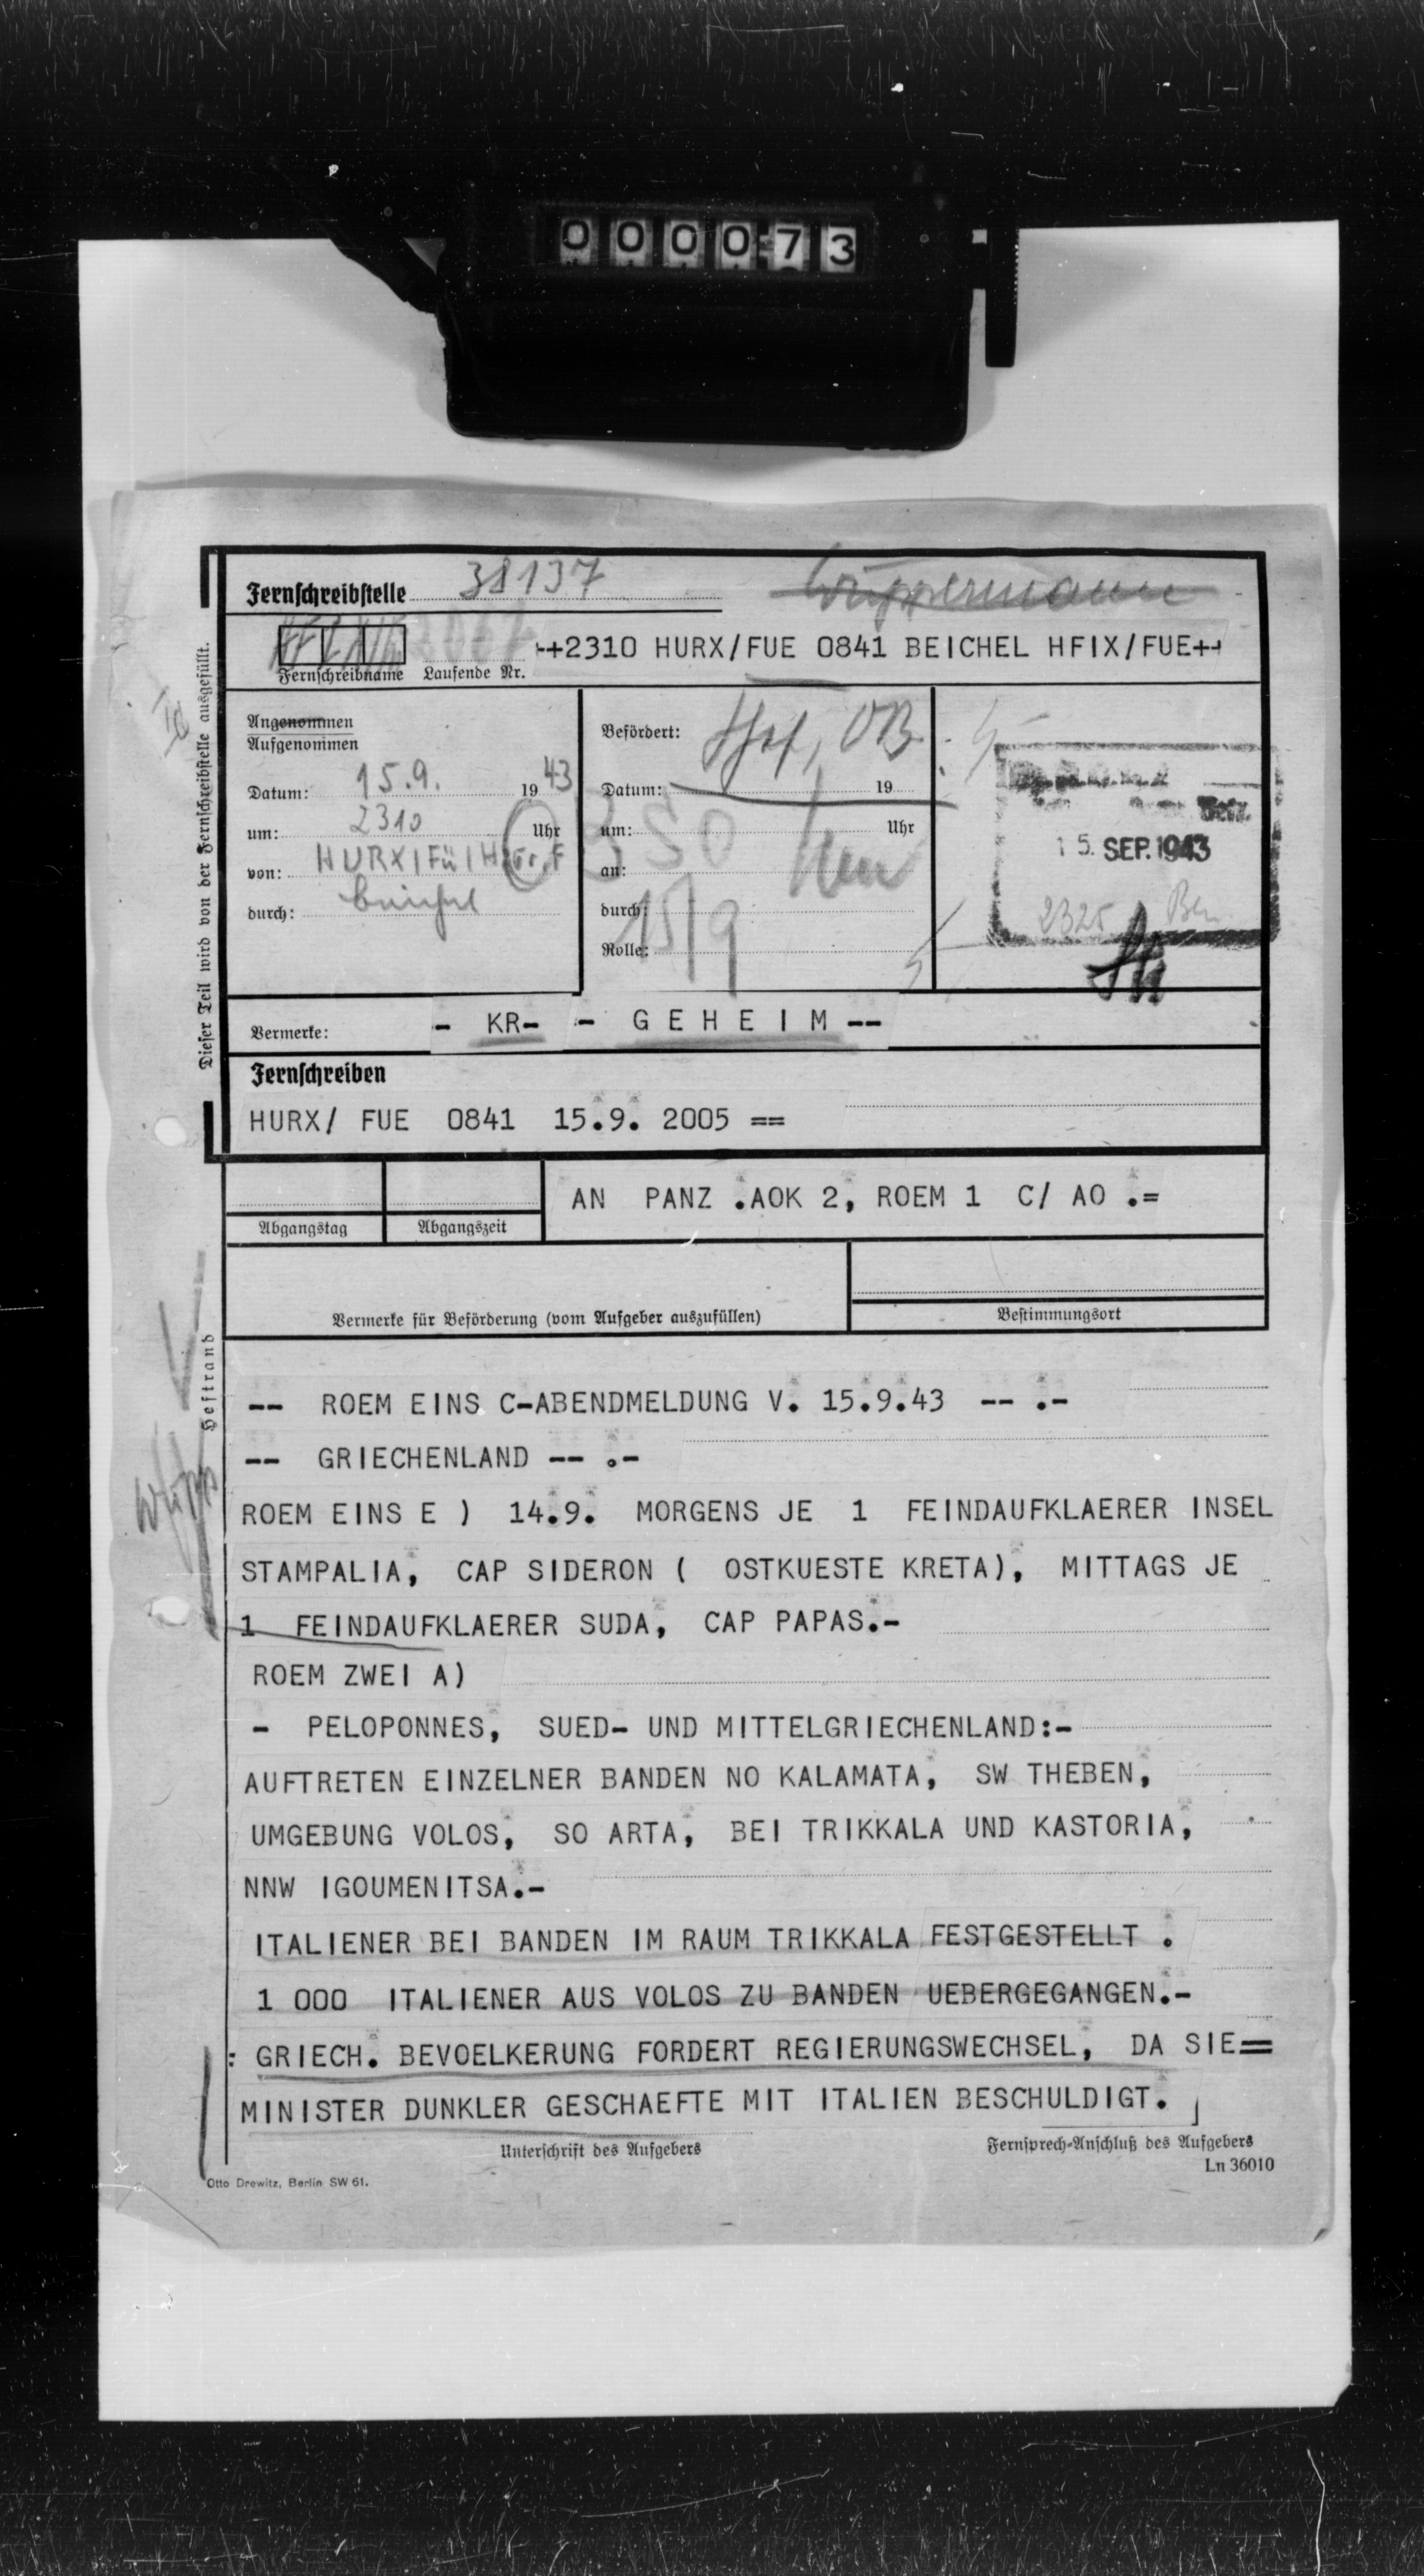 000073
Fernschreibstelle 38137 Wüppermann
++2310 HURX/FUE 0841 BEICHEL HFIX/FUE++
Fernschreibname Laufende Nr.
Angenommen
Aufgenommen
Datum: 15.9. 1943
um: 2310 Uhr
von: HURX/Fü/H.Gr.F
durch:
Befördert:
Datum: 19
um: Uhr
an:
durch:
Rolle:
15/9
15. SEP. 1943
2325
Dieser Teil wird von der Fernschreibstelle ausgefüllt.
Vermerke: - KR- - G E H E I M --
Fernschreiben
HURX/ FUE 0841 15.9. 2005 ==
AN PANZ .AOK 2, ROEM 1 C/ AO .=
Abgangstag Abgangszeit
Vermerke für Beförderung (vom Aufgeber auszufüllen) Bestimmungsort
Heftrand
-- ROEM EINS C-ABENDMELDUNG V. 15.9.43 -- .-
-- GRIECHENLAND -- .-
ROEM EINS E ) 14.9. MORGENS JE 1 FEINDAUFKLAERER INSEL
STAMPALIA, CAP SIDERON ( OSTKUESTE KRETA), MITTAGS JE
1 FEINDAUFKLAERER SUDA, CAP PAPAS.-
ROEM ZWEI A)
- PELOPONNES, SUED- UND MITTELGRIECHENLAND:-
AUFTRETEN EINZELNER BANDEN NO KALAMATA, SW THEBEN,
UMGEBUNG VOLOS, SO ARTA, BEI TRIKKALA UND KASTORIA,
NNW IGOUMENITSA.-
ITALIENER BEI BANDEN IM RAUM TRIKKALA FESTGESTELLT .
1 000 ITALIENER AUS VOLOS ZU BANDEN UEBERGEGANGEN.-
: GRIECH. BEVOELKERUNG FORDERT REGIERUNGSWECHSEL, DA SIE=
MINISTER DUNKLER GESCHAEFTE MIT ITALIEN BESCHULDIGT.
Unterschrift des Aufgebers Fernsprech-Anschluß des Aufgebers
Ln 36010
Otto Drewitz, Berlin SW 61.